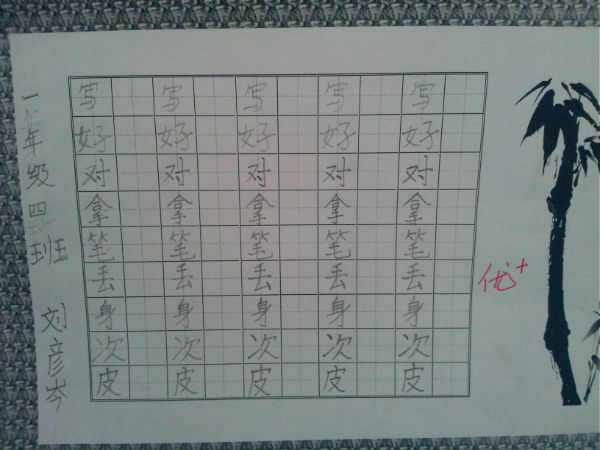 一年级四班 刘彦岑
写 写 写 写 写
好 好 好 好 好
对 对 对 对 对
拿 拿 拿 拿 拿
笔 笔 笔 笔 笔
丢 丢 丢 丢 丢
身 身 身 身 身
次 次 次 次 次
皮 皮 皮 皮 皮
优+